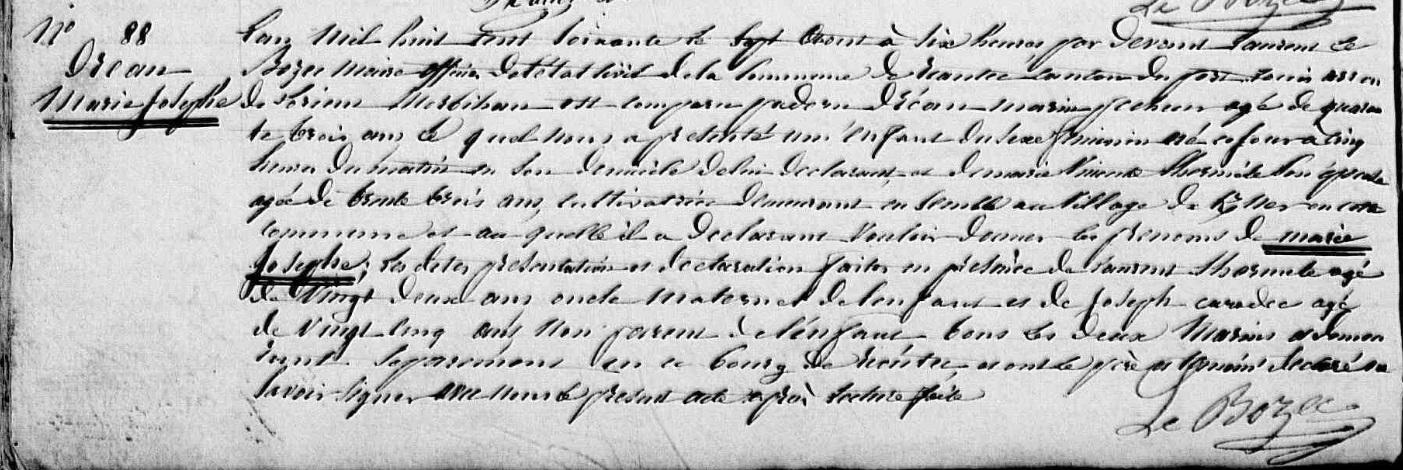 Le Bozec
N° 88
Dréan
Marie Josephe
L'an mil huit cent soixante le sept Aout à six heures par devant Laurent Le
Bozec Maire officier de l'état civil de la Commune de Canton du port Louis arron
de Lorient Morbihan est comparu Dréan marin pecheur agé de quaran
te trois ans le quel nous a présenté un enfant du sexe féminin né ce jour à cinq
heures du matin en son domicile de lui declarant, et de marie Vincente Thormète son épouse
agée de trente trois ans, cultivatrice demeurant ensemble au village de en cette
commune et au quelle il a declarant vouloir donner les prenoms de marie
Josephe; les dites présentation et declaration faites en présence de Laurent agé
de Vingt deux ans oncle maternel de l'enfant et de Joseph caradec agé
de Vingt cinq ans non parent de l'enfant tous les deux Marins et demeu
rant séparement en ce bourg de et ont le père et témoins declaré ne
savoir signer avec nous le present acte après lecture faite
Le Bozec